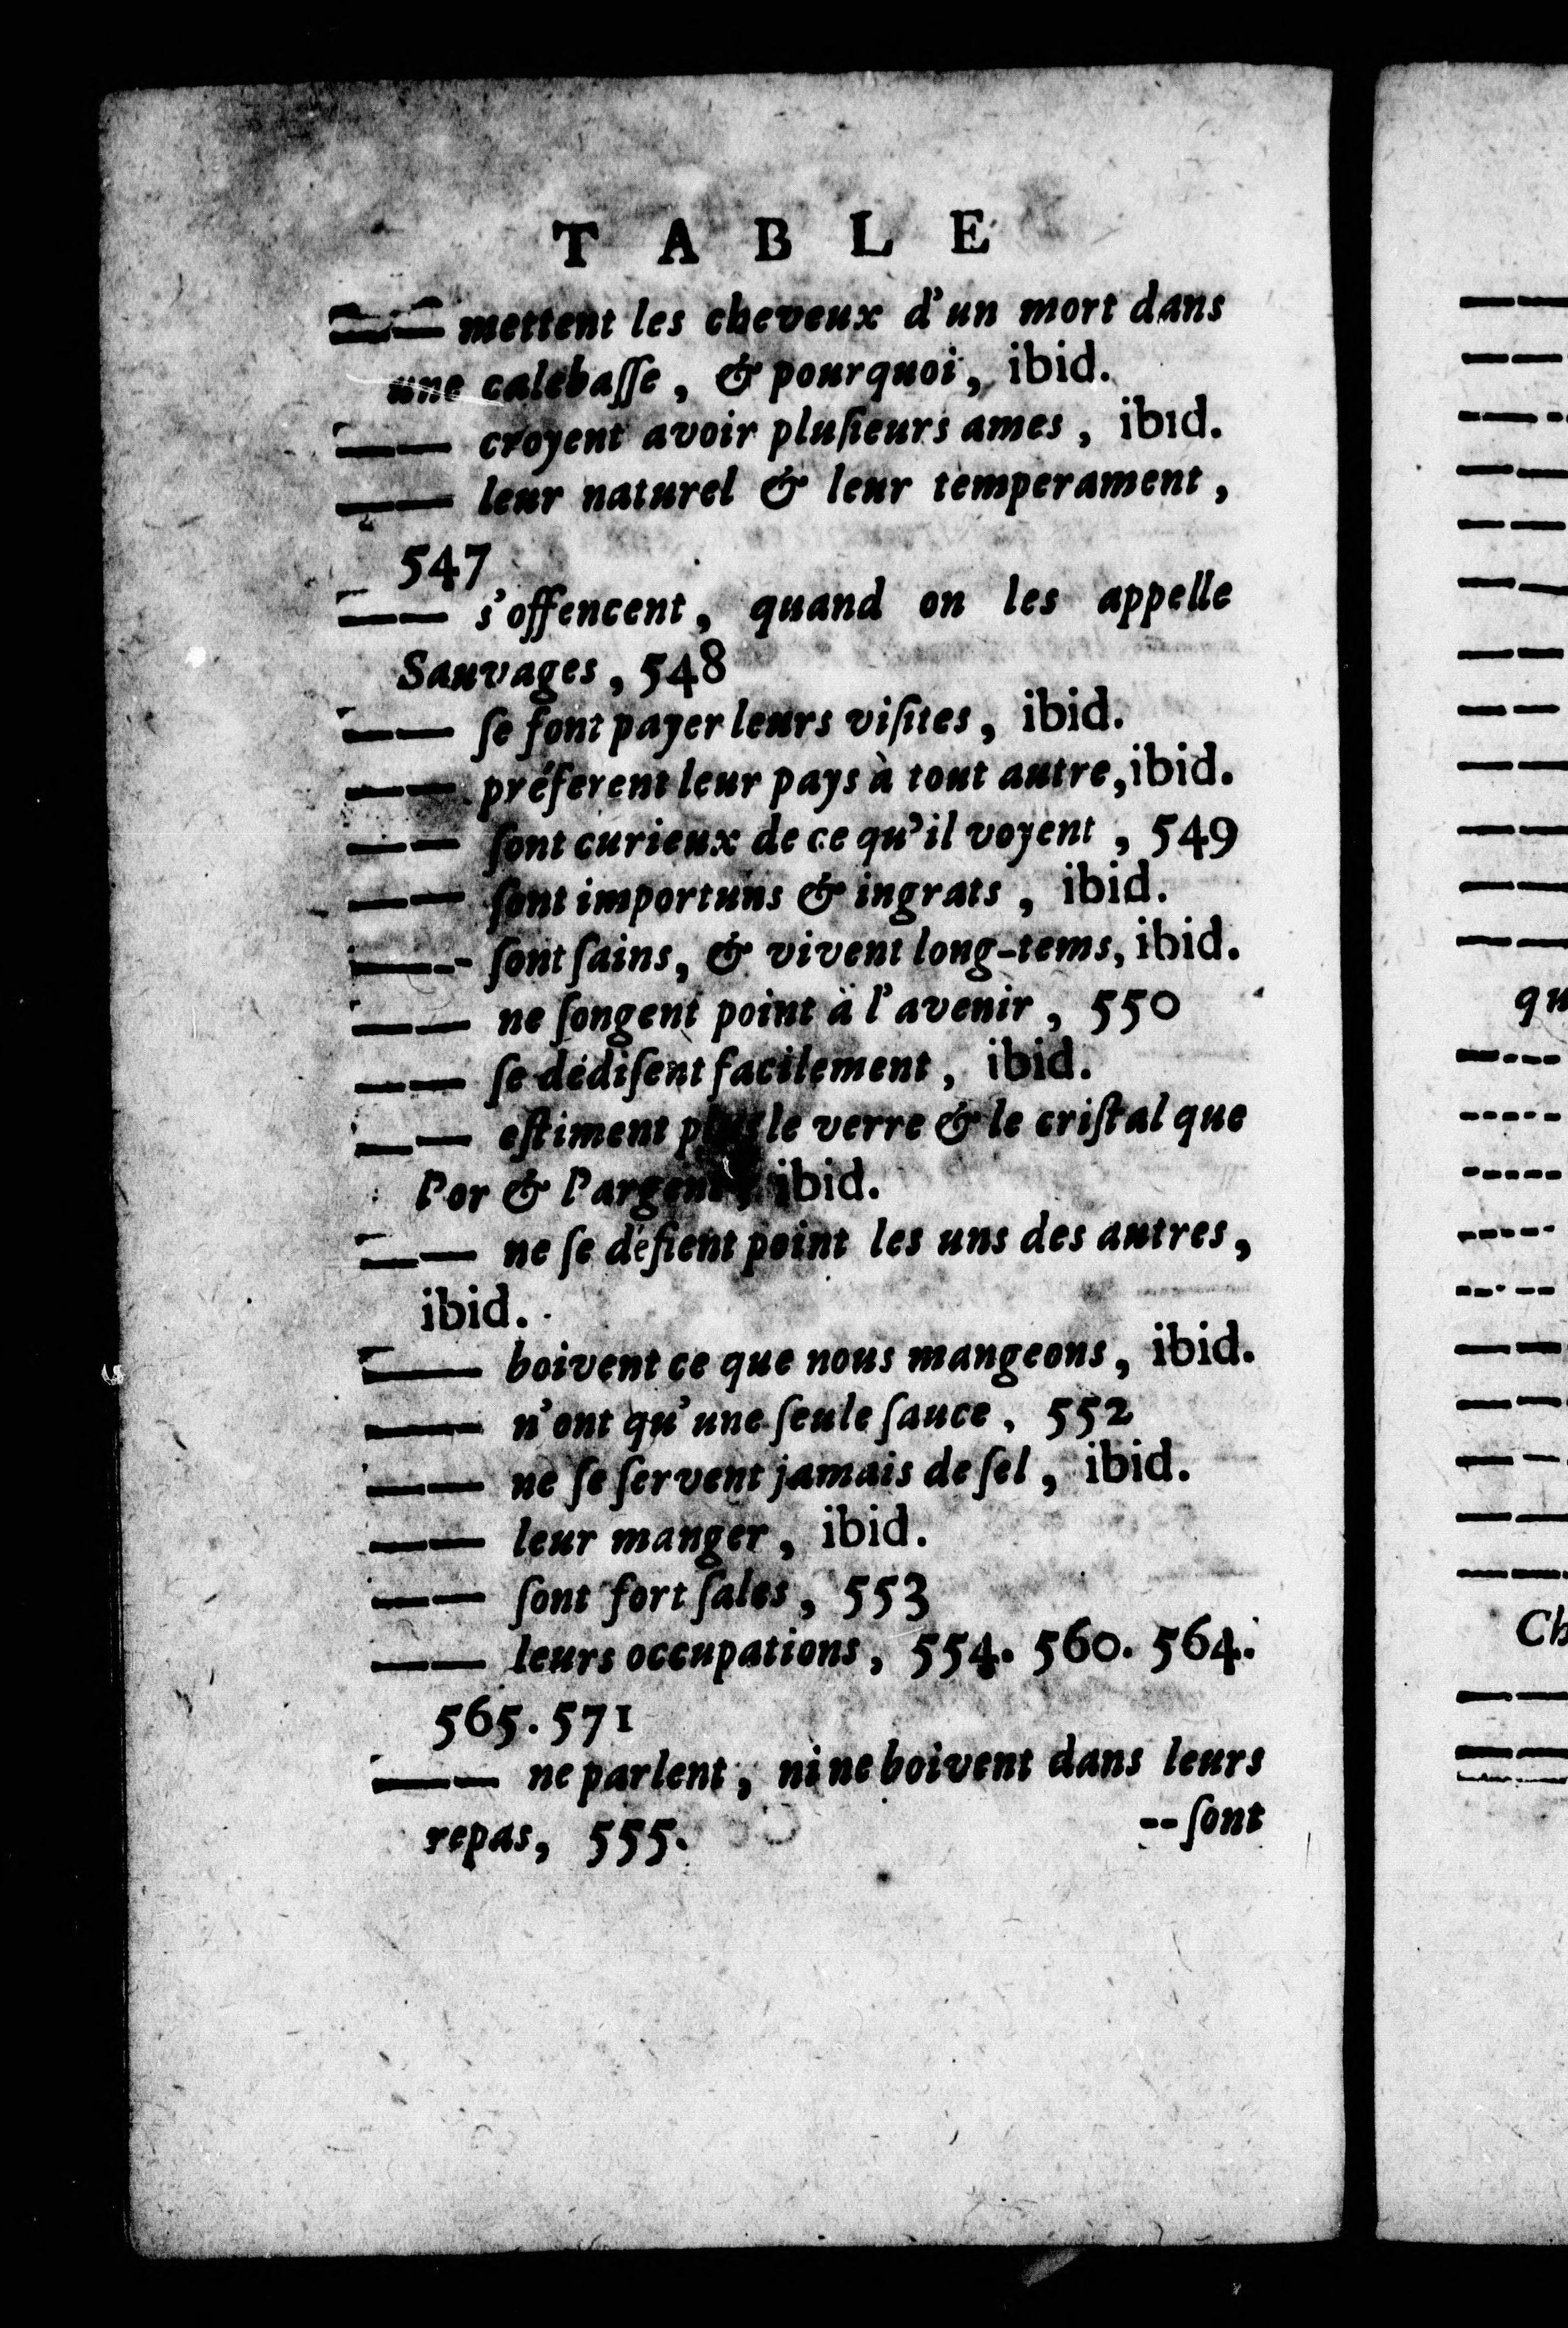 TABLE
—— mettent les cheveux d'un mort dans
une calebaſſe, & pourquoi, ibid.
—— croyent avoir pluſieurs ames, ibid.
—— leur naturel & leur temperament,
547
—— s'offencent, quand on les appelle
Sauvages, 548
—— ſe font payer leurs viſites, ibid.
—— préferent leur pays à tout autre, ibid.
—— ſont curieux de ce qu'il voyent, 549
—— ſont importuns & ingrats, ibid.
—— ſont ſains, & vivent long-tems, ibid.
—— ne ſongent point à l'avenir, 550
—— ſe dédiſent facilement, ibid.
—— eſtiment plus le verre & le criſtal que
l'or & l'argent, ibid.
—— ne ſe défient point les uns des autres,
ibid.
—— boivent ce que nous mangeons, ibid.
—— n'ont qu'une ſeule ſauce, 552
—— ne ſe ſervent jamais de ſel, ibid.
—— leur manger, ibid.
—— ſont fort ſales, 553
—— leurs occupations, 554. 560. 564.
565. 571
—— ne parlent, ni ne boivent dans leurs
repas, 555.
--ſont
qu
Ch